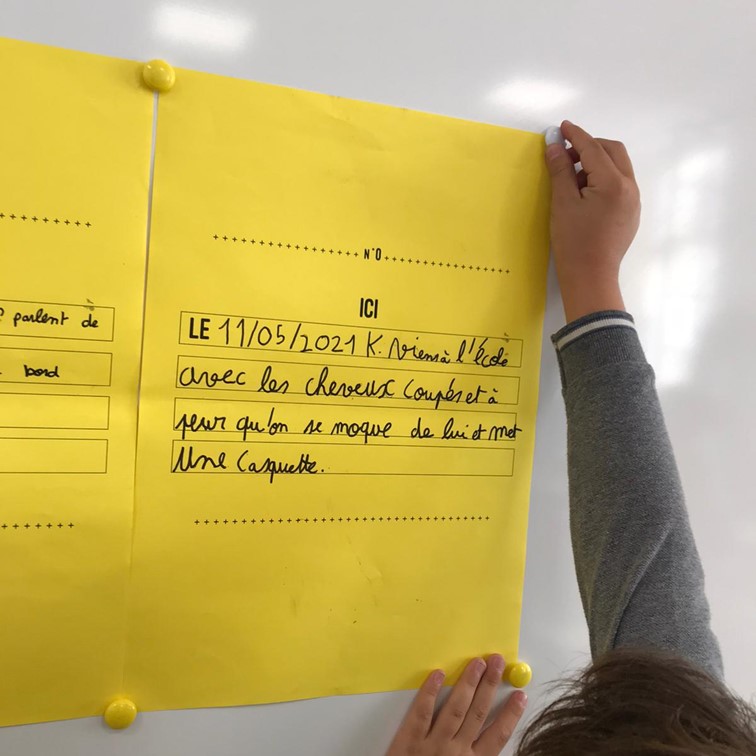 parlent de
bord
N°0
ICI
LE 11/05/2021 K. viens à l'école
avec les cheveux coupés et à
peur qu'on se moque de lui et met
Une Casquette.